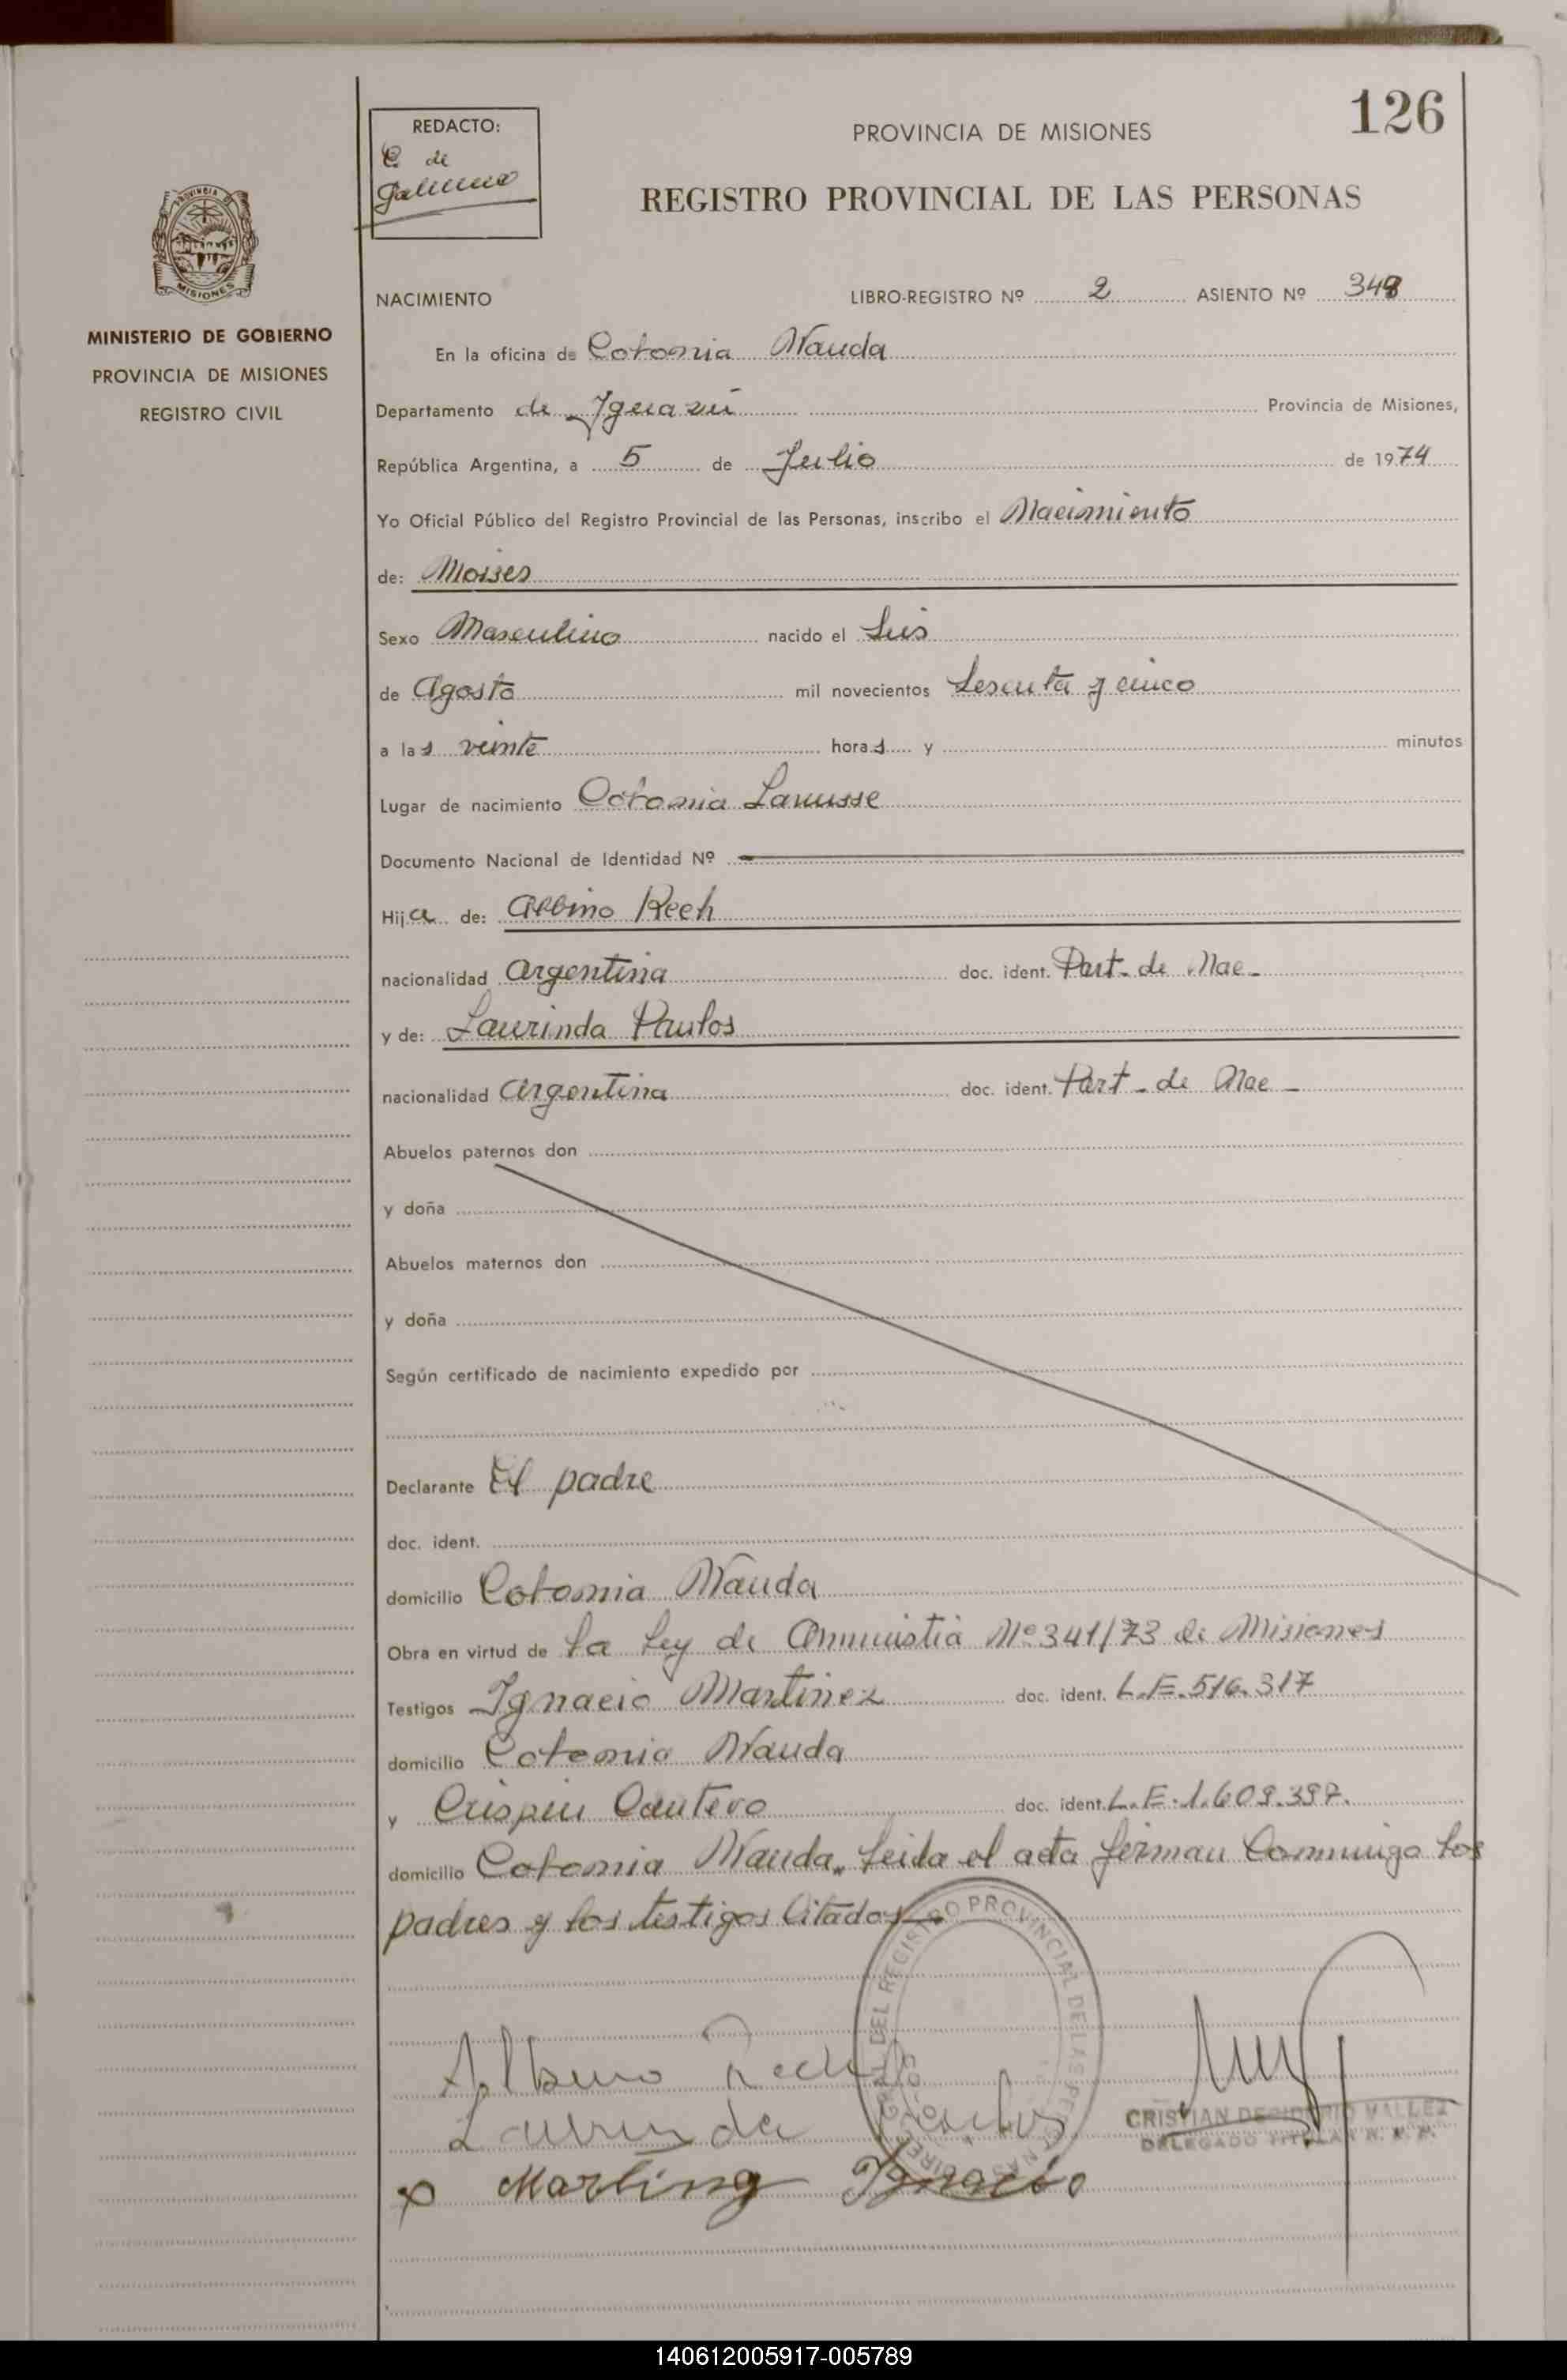 126
REDACTO:
C. de
PROVINCIA DE MISIONES
REGISTRO PROVINCIAL DE LAS PERSONAS
PROVINCIA DE
MISIONES
MINISTERIO DE GOBIERNO
PROVINCIA DE MISIONES
REGISTRO CIVIL
NACIMIENTO LIBRO-REGISTRO Nº 2 ASIENTO Nº 348
En la oficina de Colonia Wanda
Departamento de Iguazú Provincia de Misiones,
República Argentina, a 5 de Julio de 1974
Yo Oficial Público del Registro Provincial de las Personas, inscribo el Nacimiento
de: Moises
Sexo Masculino nacido el Seis
de Agosto mil novecientos Sesenta y cinco
a las veinte horas y minutos
Lugar de nacimiento Colonia Lanusse
Documento Nacional de Identidad Nº
Hija de: Albino Rech
nacionalidad Argentina doc. ident. Part. de Nac.
y de: Laurinda Paulos
nacionalidad Argentina doc. ident. Part. de Nac
Abuelos paternos don
y doña
Abuelos maternos don
y doña
Según certificado de nacimiento expedido por
Declarante El padre
doc. ident.
domicilio Colonia Wanda
Obra en virtud de la Ley de Amnistia Nº 341/73 de Misiones
Testigos Ignacio Martinez doc. ident. L.E. 516.317
domicilio Colonia Wanda
y Crispin Cantero doc. ident. L.E. 1.609.397.
domicilio Colonia Wanda, Leida el acta firman Conmigo los
padres y los testigos Citados
Albino Rech
Laurinda Paulos
Martinez Ignacio
CRISTIAN DESIDERIO VALLEZ
DELEGADO TITULAR R. P. P.
140612005917-005789